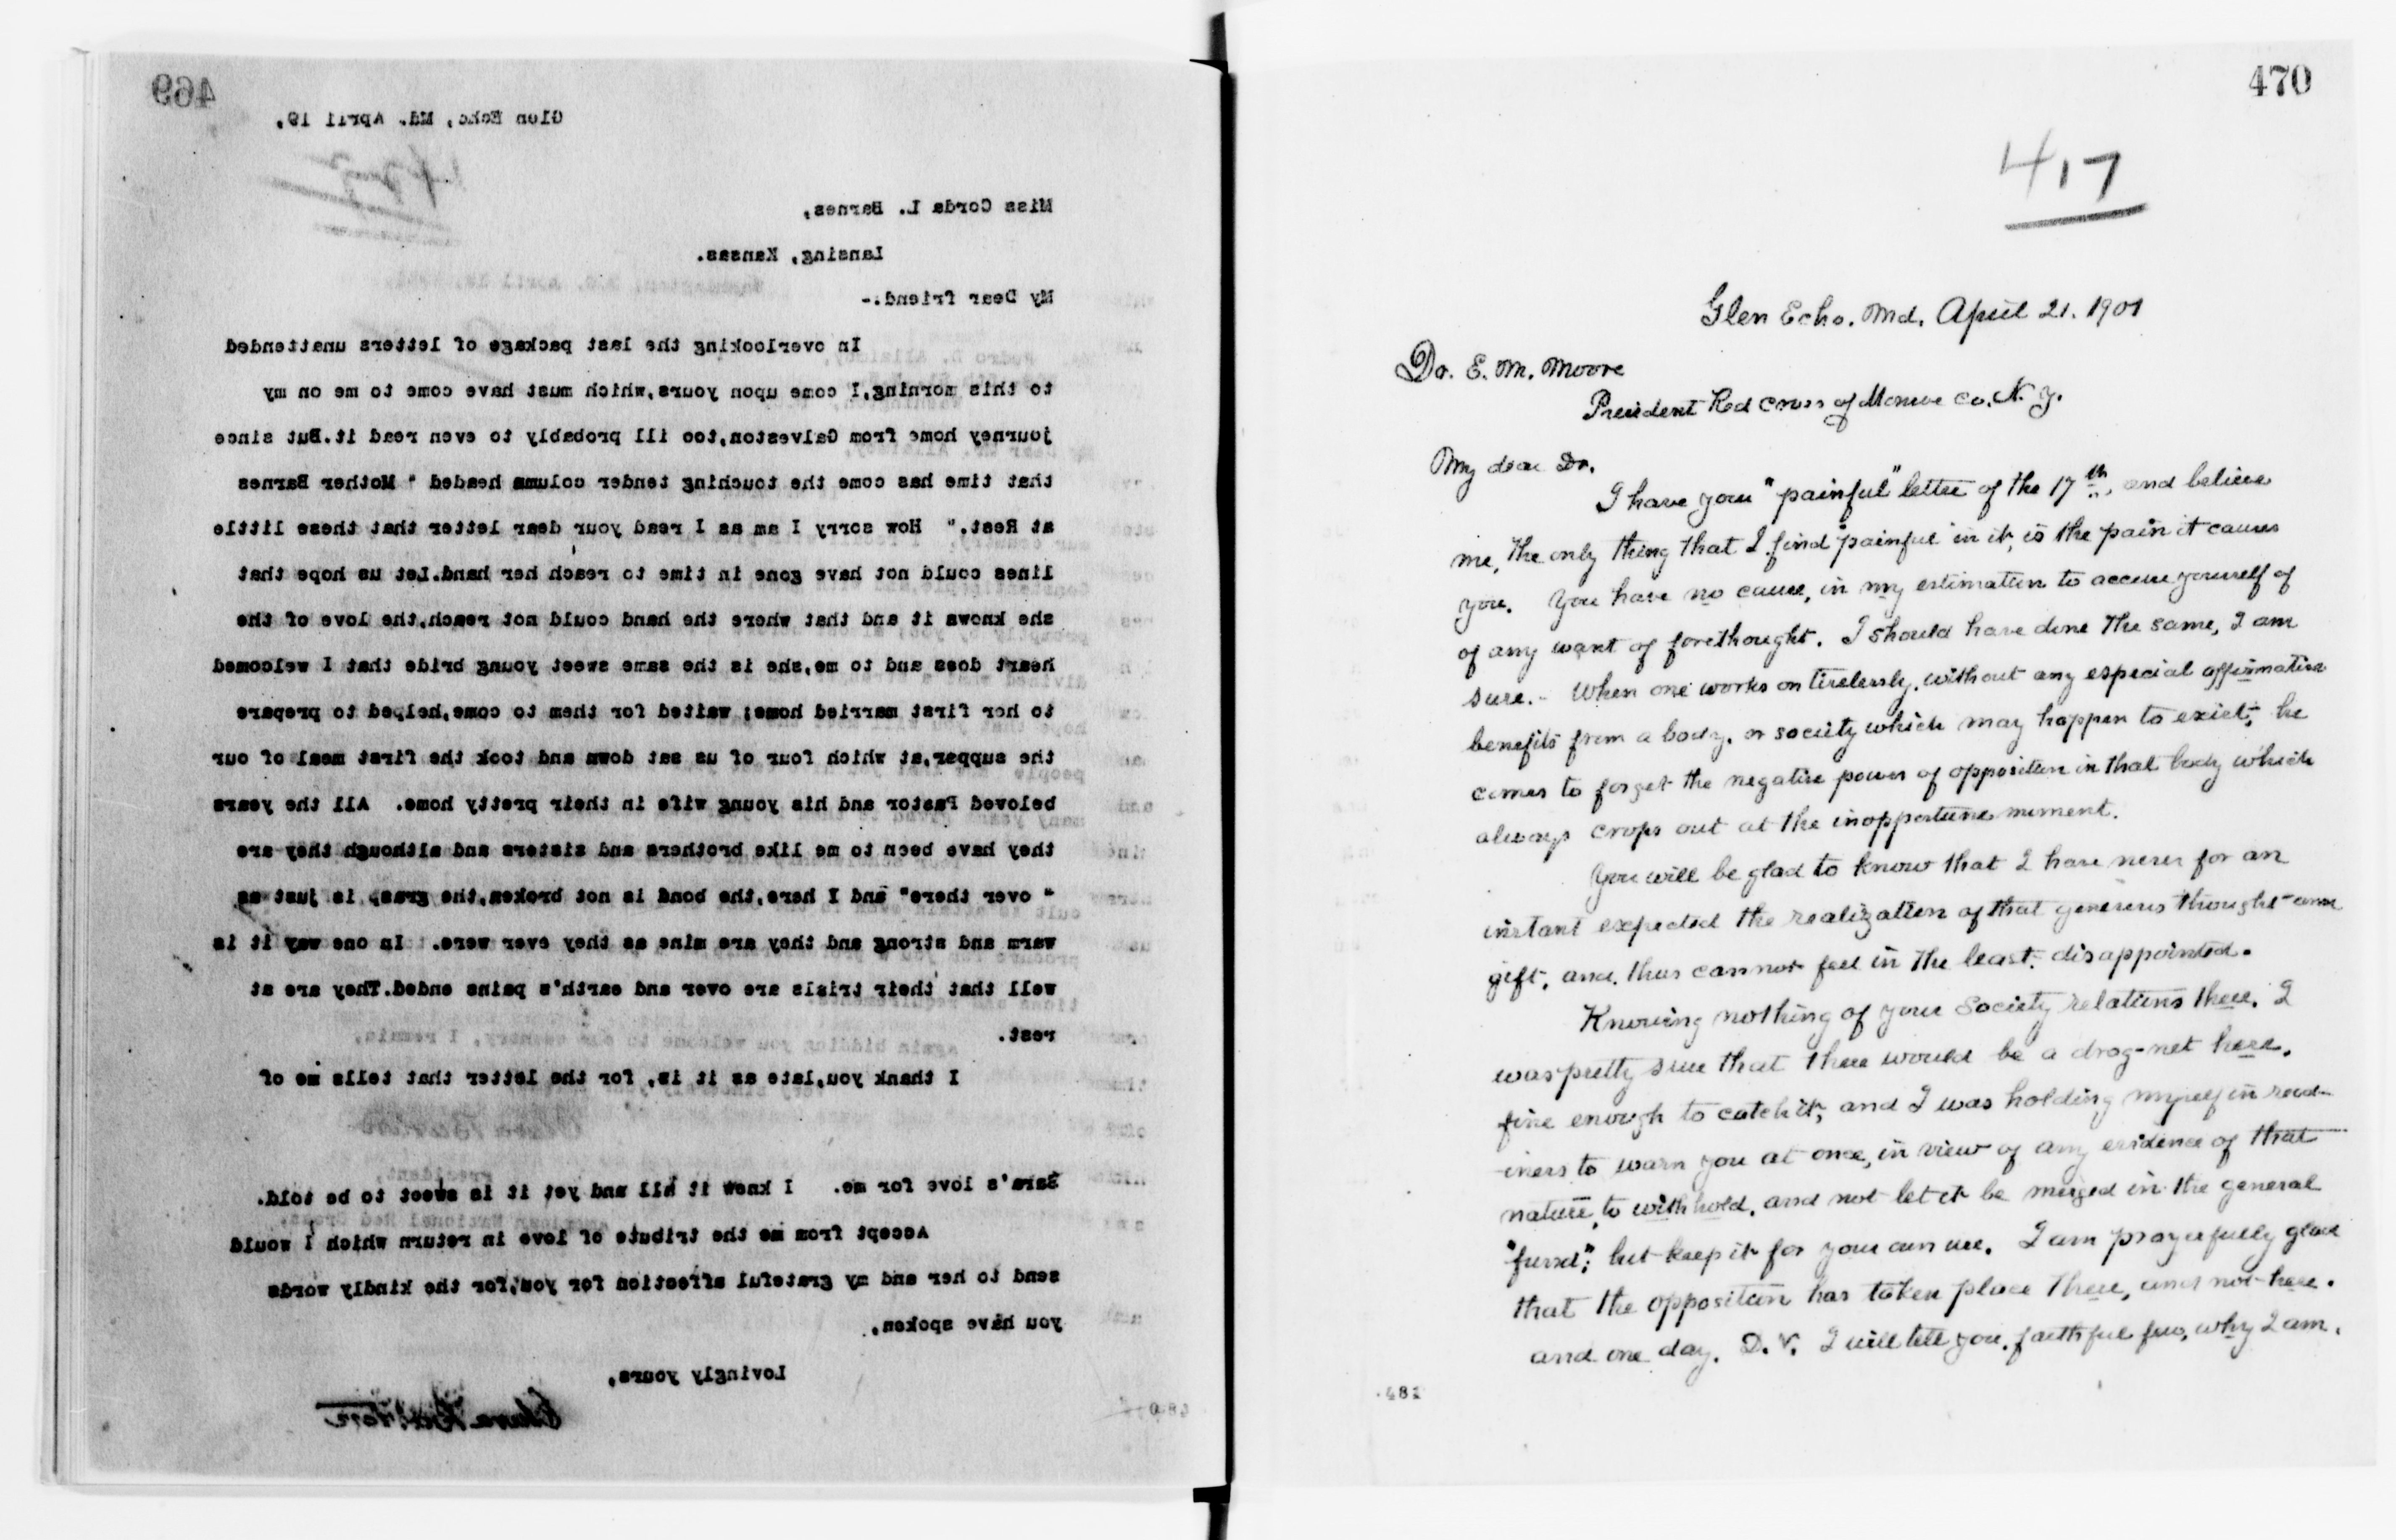 469
Glen Echo, Md. April 19,
Miss Corda L. Barnes,
Lansing, Kansas.
My Dear friend:-
In overlooking the last package of letters unattended
to this morning,I come upon yours,which must have come to me on my
journey home from Galveston,too ill probably to even read it.But since
that time has come the touching tender column headed " Mother Barnes
at Rest." How sorry I am as I read your dear letter that these little
lines could not have gone in time to reach her hand.Let us hope that
she knows it and that where the hand could not reach,the love of the
heart does and to me,she is the same sweet young bride that I welcomed
to her first married home; waited for them to come,helped to prepare
the supper,at which four of us sat down and took the first meal of our
beloved Pastor and his young wife in their pretty home. All the years
they have been to me like brothers and sisters and although they are
" over there" and I here,the bond is not broken,the grasp is just as
warm and strong and they are mine as they ever were. In one way it is
well that their trials are over and earth's pains ended.They are at
rest.
I thank you,late as it is, for the letter that tells me of
Sara's love for me. I knew it all and yet it is sweet to be told.
Accept from me the tribute of love in return which I would
send to her and my grateful affection for you,for the kindly words
you have spoken,
Lovingly yours,
Clara Barton
480
470
417
Glen Echo. Md. April 21. 1901
Dr. E. M. Moore
President Red Cross of Monroe Co. N. Y.
My dear Dr.
I have your "painful" letter of the 17th, and believe
me, the only thing that I find "painful" in it, is the pain it causes
you. You have no cause, in my estimation to accuse yourself of
of any want of forethought. I should have done the same, I am
sure. - When one works on tirelessly, without any especial affirmative
benefits from a body, or society which may happen to exist, he
comes to forget the negative power of opposition in that body which
always crops out at the inopportune moment.
You will be glad to know that I have never for an
instant expected the realization of that generous thought and
gift, and thus cannot feel in the least, disappointed.
Knowing nothing of your Society relations there, I
was pretty sure that there would be a drag-net here,
fine enough to catch it, and I was holding myself in read-
iness to warn you at once, in view of any evidence of that
nature, to withhold, and not let it be merged in the general
"fund"; but keep it for your own use. I am prayerfully glad
that the opposition has taken place there, and not here.
and one day, D. V. I will tell you, faithful few, why I am.
481